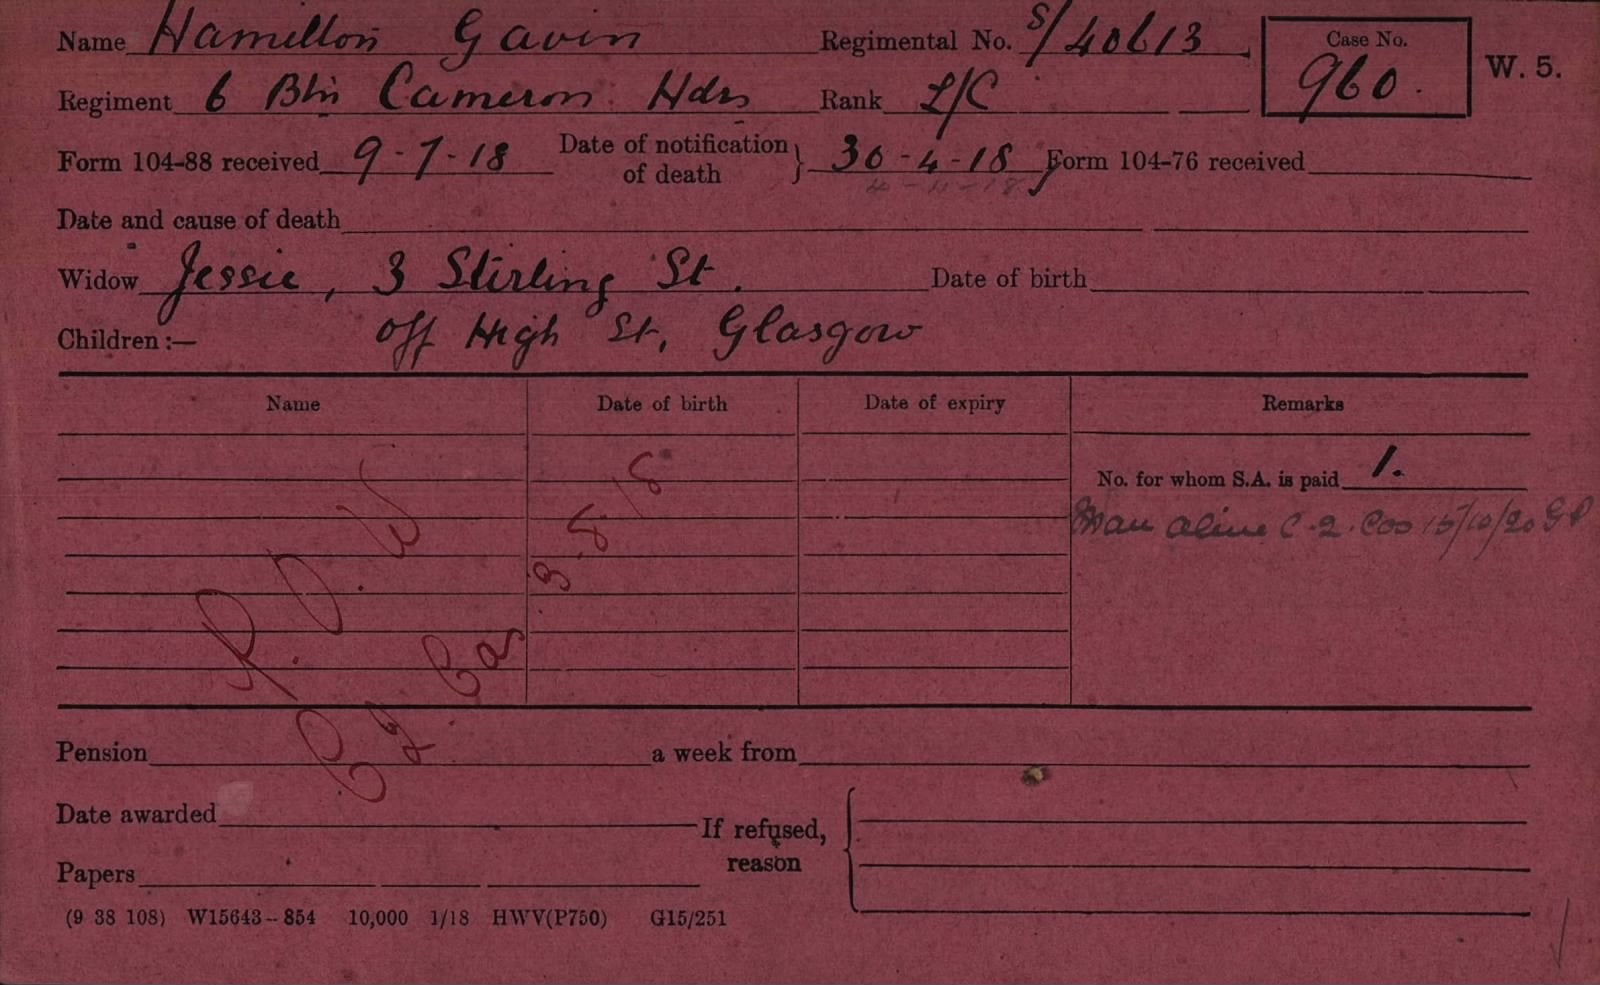 Name Hamilton Gavin Regimental No. S/40613 Case No. 960. W. 5.
Regiment 6 Btn Cameron Hdrs Rank L/C
Form 104-88 received 9-7-18 Date of notification of death } 30-4-18 Form 104-76 received
4-4-18
Date and cause of death
Widow Jessie, 3 Stirling St. Date of birth
Children :— off High St, Glasgow
Name Date of birth Date of expiry Remarks
No. for whom S.A. is paid 1.
Man alive C.2. Cas 15/10/20
P.O.W
C.2. Cas 3-8-18
Pension a week from
Date awarded If refused, reason
Papers
(9 38 108) W15643-854 10,000 1/18 HWV(P750) G15/251